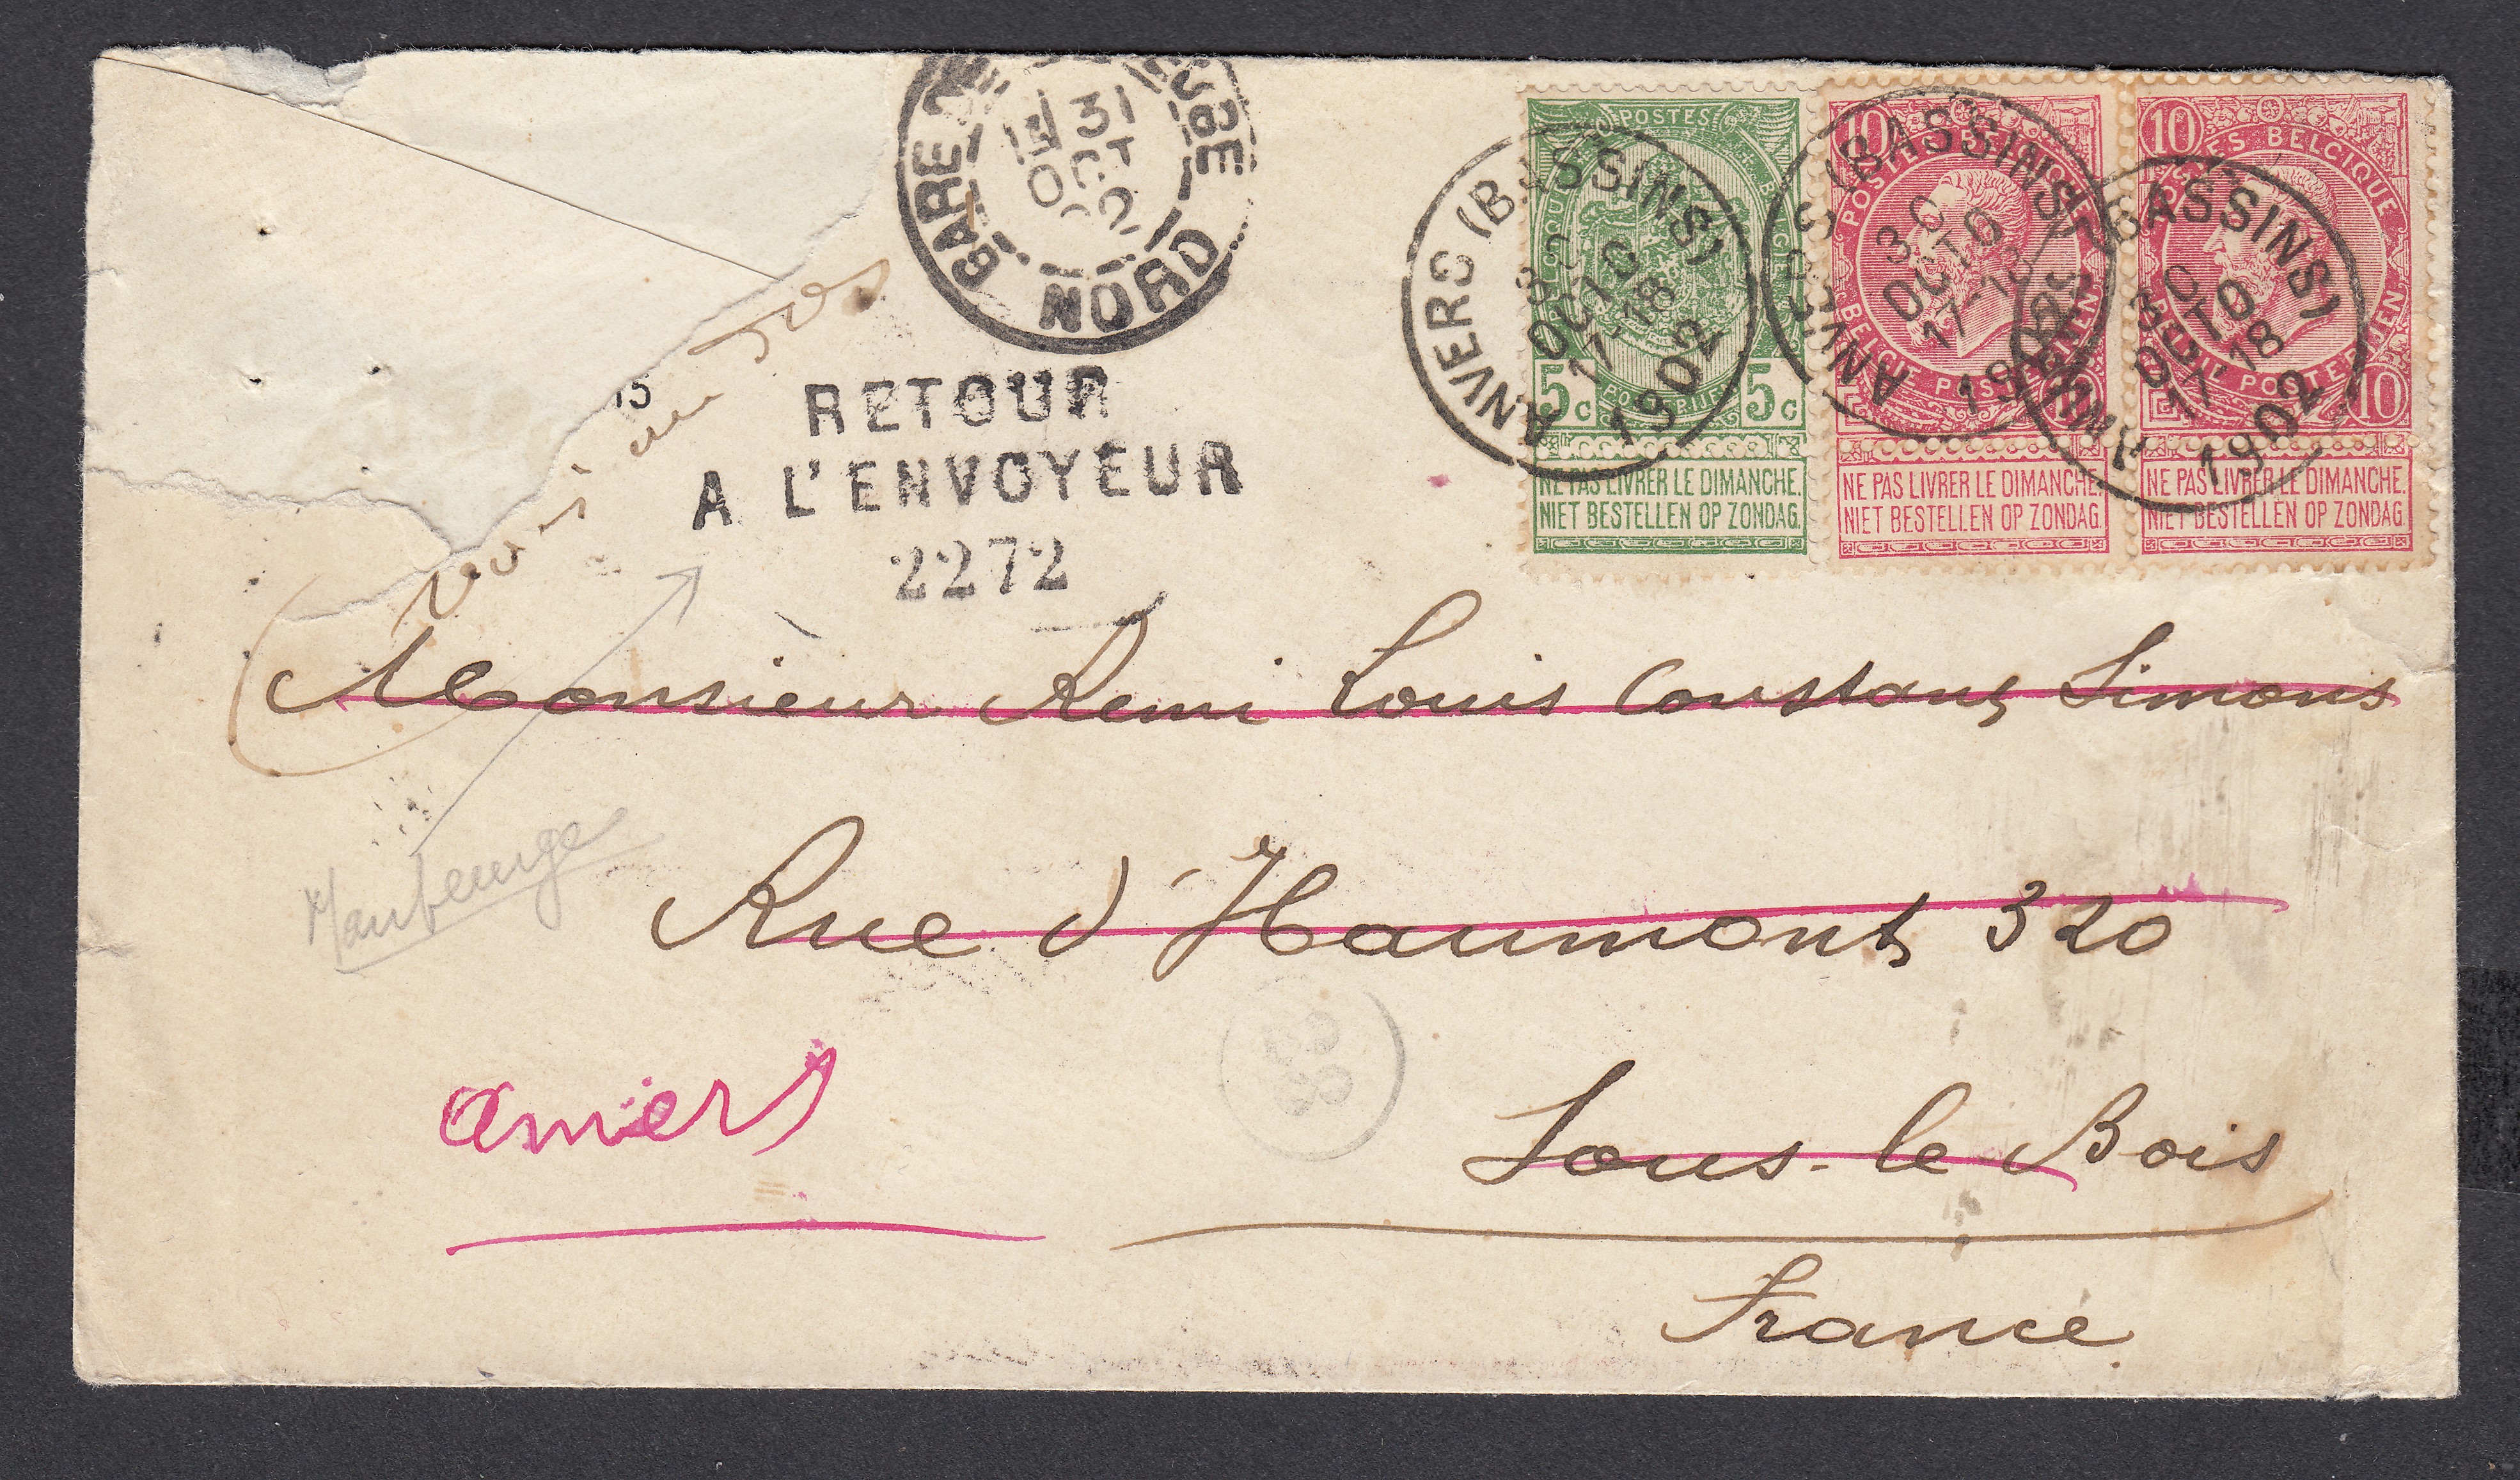 GARE DE
NORD
31
OCT
02
15
RETOUR
A L'ENVOYEUR
2272
POSTES
5c 5c
NE PAS LIVRER LE DIMANCHE.
NIET BESTELLEN OP ZONDAG.
10
POSTES BELGIQUE
BELGIE POSTERIJEN
NE PAS LIVRER LE DIMANCHE.
NIET BESTELLEN OP ZONDAG.
10 10
POSTES BELGIQUE
BELGIE POSTERIJEN
NE PAS LIVRER LE DIMANCHE.
NIET BESTELLEN OP ZONDAG.
ANVERS (BASSINS)
30
OCTO
17-18
1902
ANVERS (BASSINS)
30
OCTO
17-18
1902
ANVERS (BASSINS)
30
OCTO
17-18
1902
Monsieur Remi Louis Constant Simons
Maubeuge
Rue d'Haumont 320
Anvers
Sous-le Bois
France